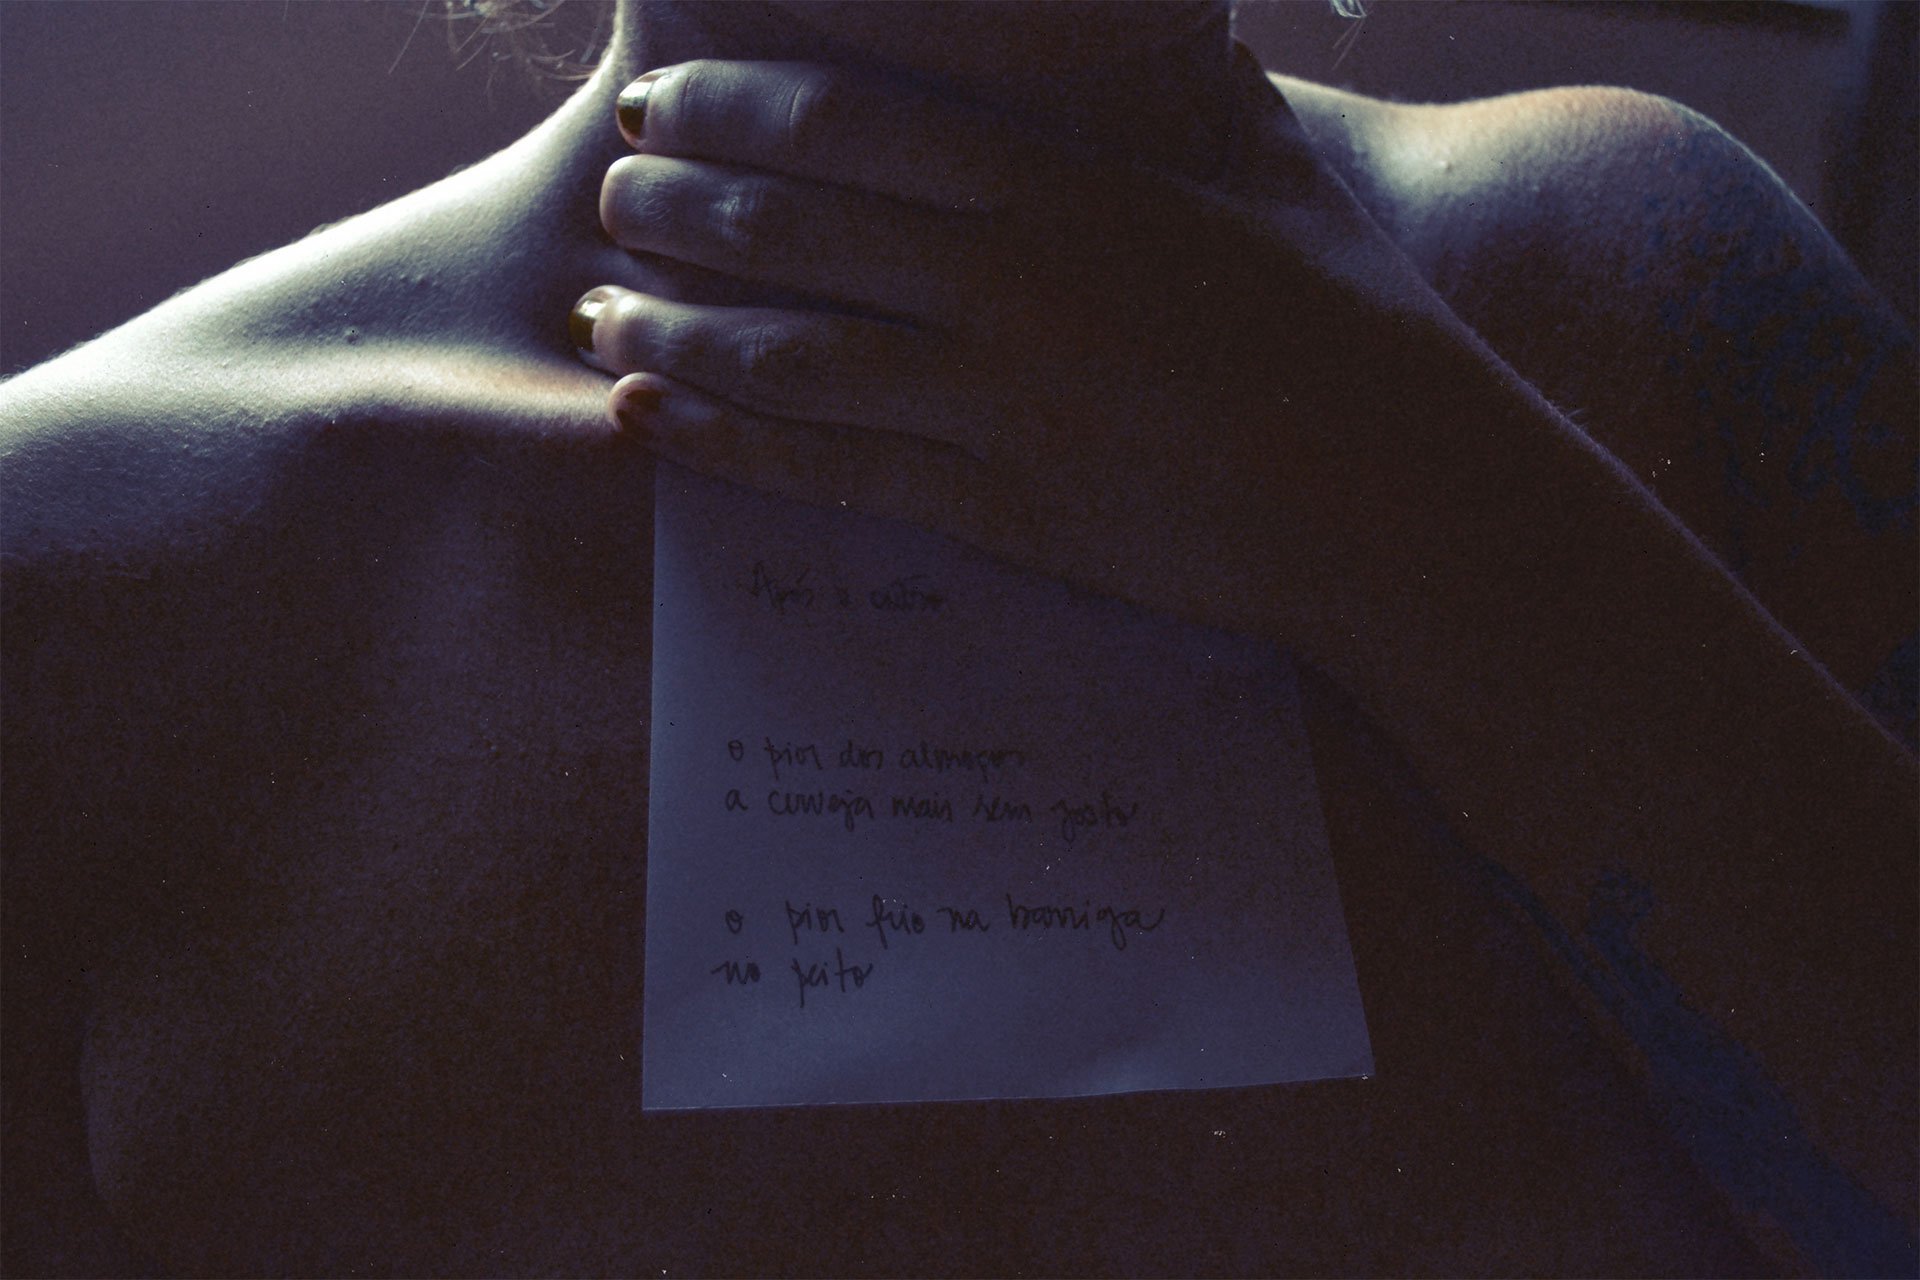 Após o outro
o pior dos almoços
a cerveja mais sem gosto
o pior frio na barriga
no peito